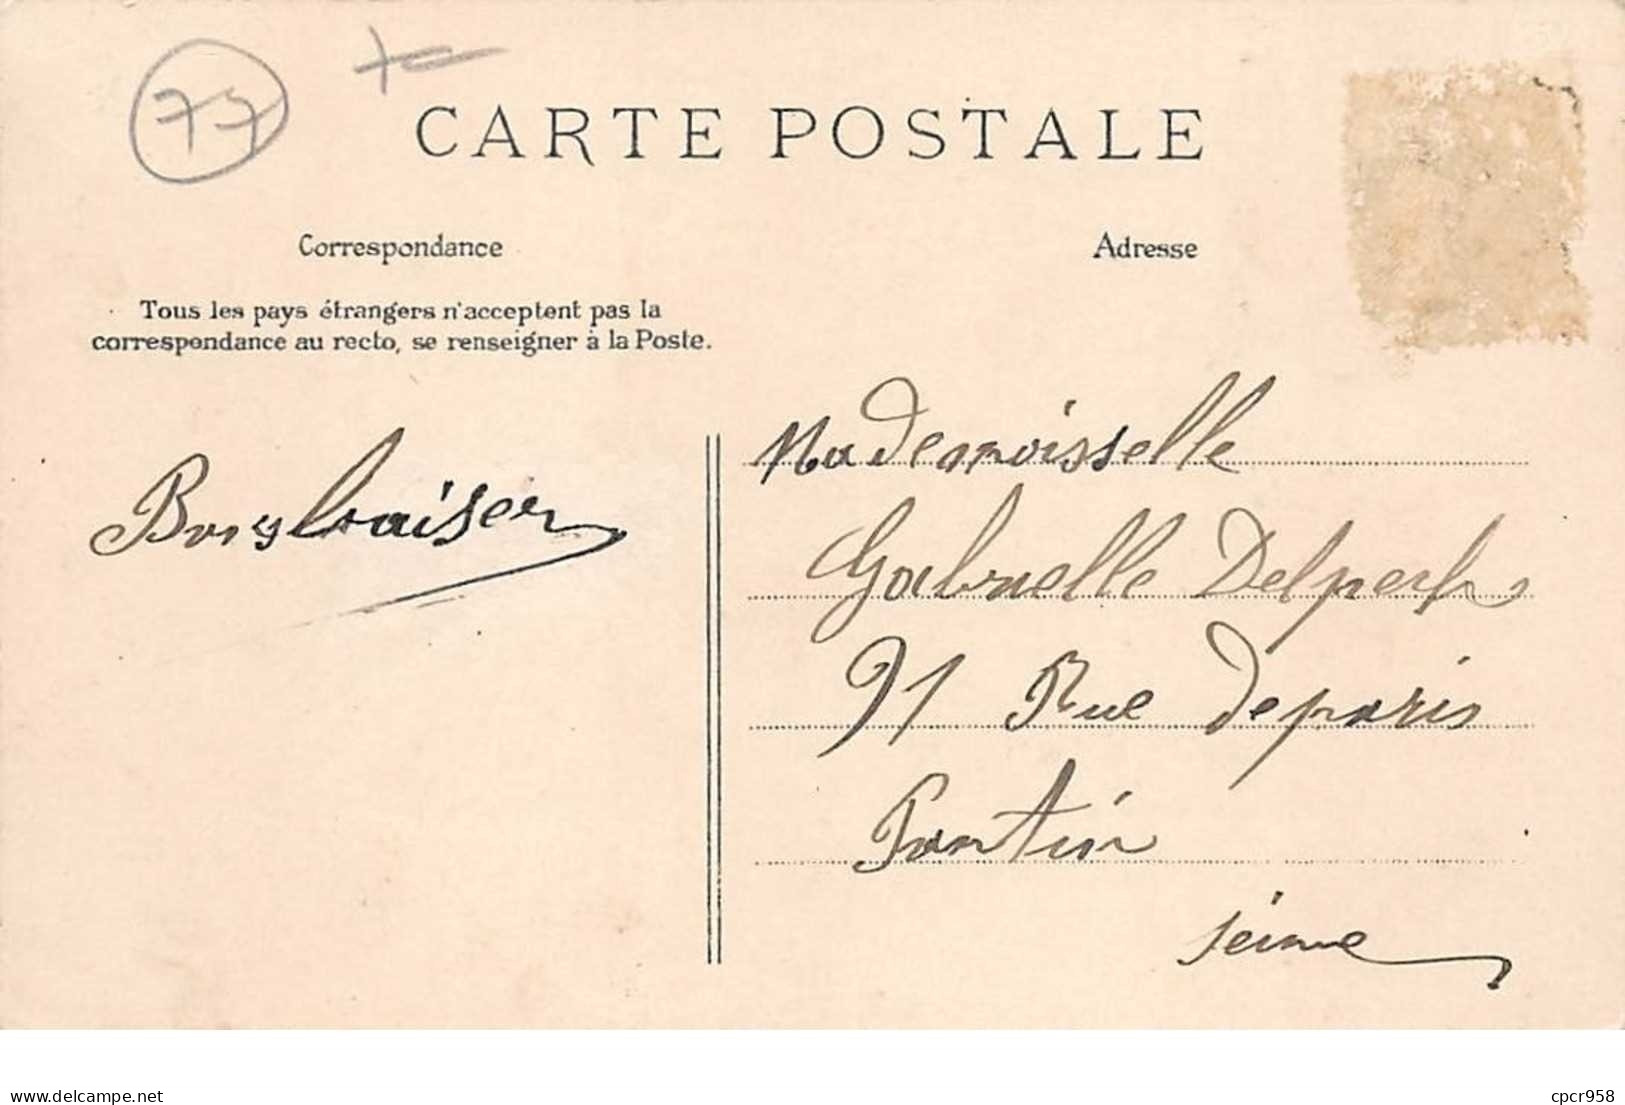 77
CARTE POSTALE
Correspondance
Adresse
Tous les pays étrangers n'acceptent pas la
correspondance au recto, se renseigner à la Poste.
Mademoisselle
Gabrielle
91 Rue de paris
Pantin
seine
www.delcampe.net
cpcr958